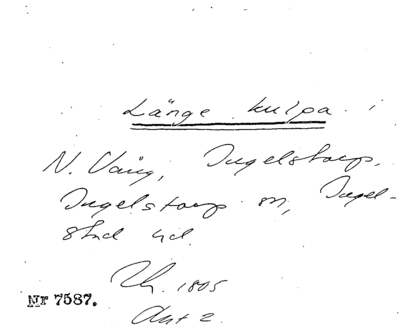 Länge kulpa.
N. Vång, Ingelstorp.
Ingelstorp sn, Ingel-
stad hd.
Uh. 1805
Akt 2.
Nr 7587.